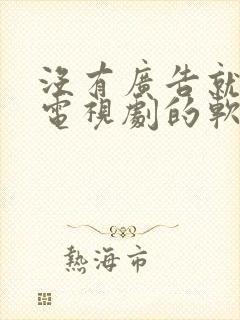 没有廣告就
電視劇的軟
熱海市